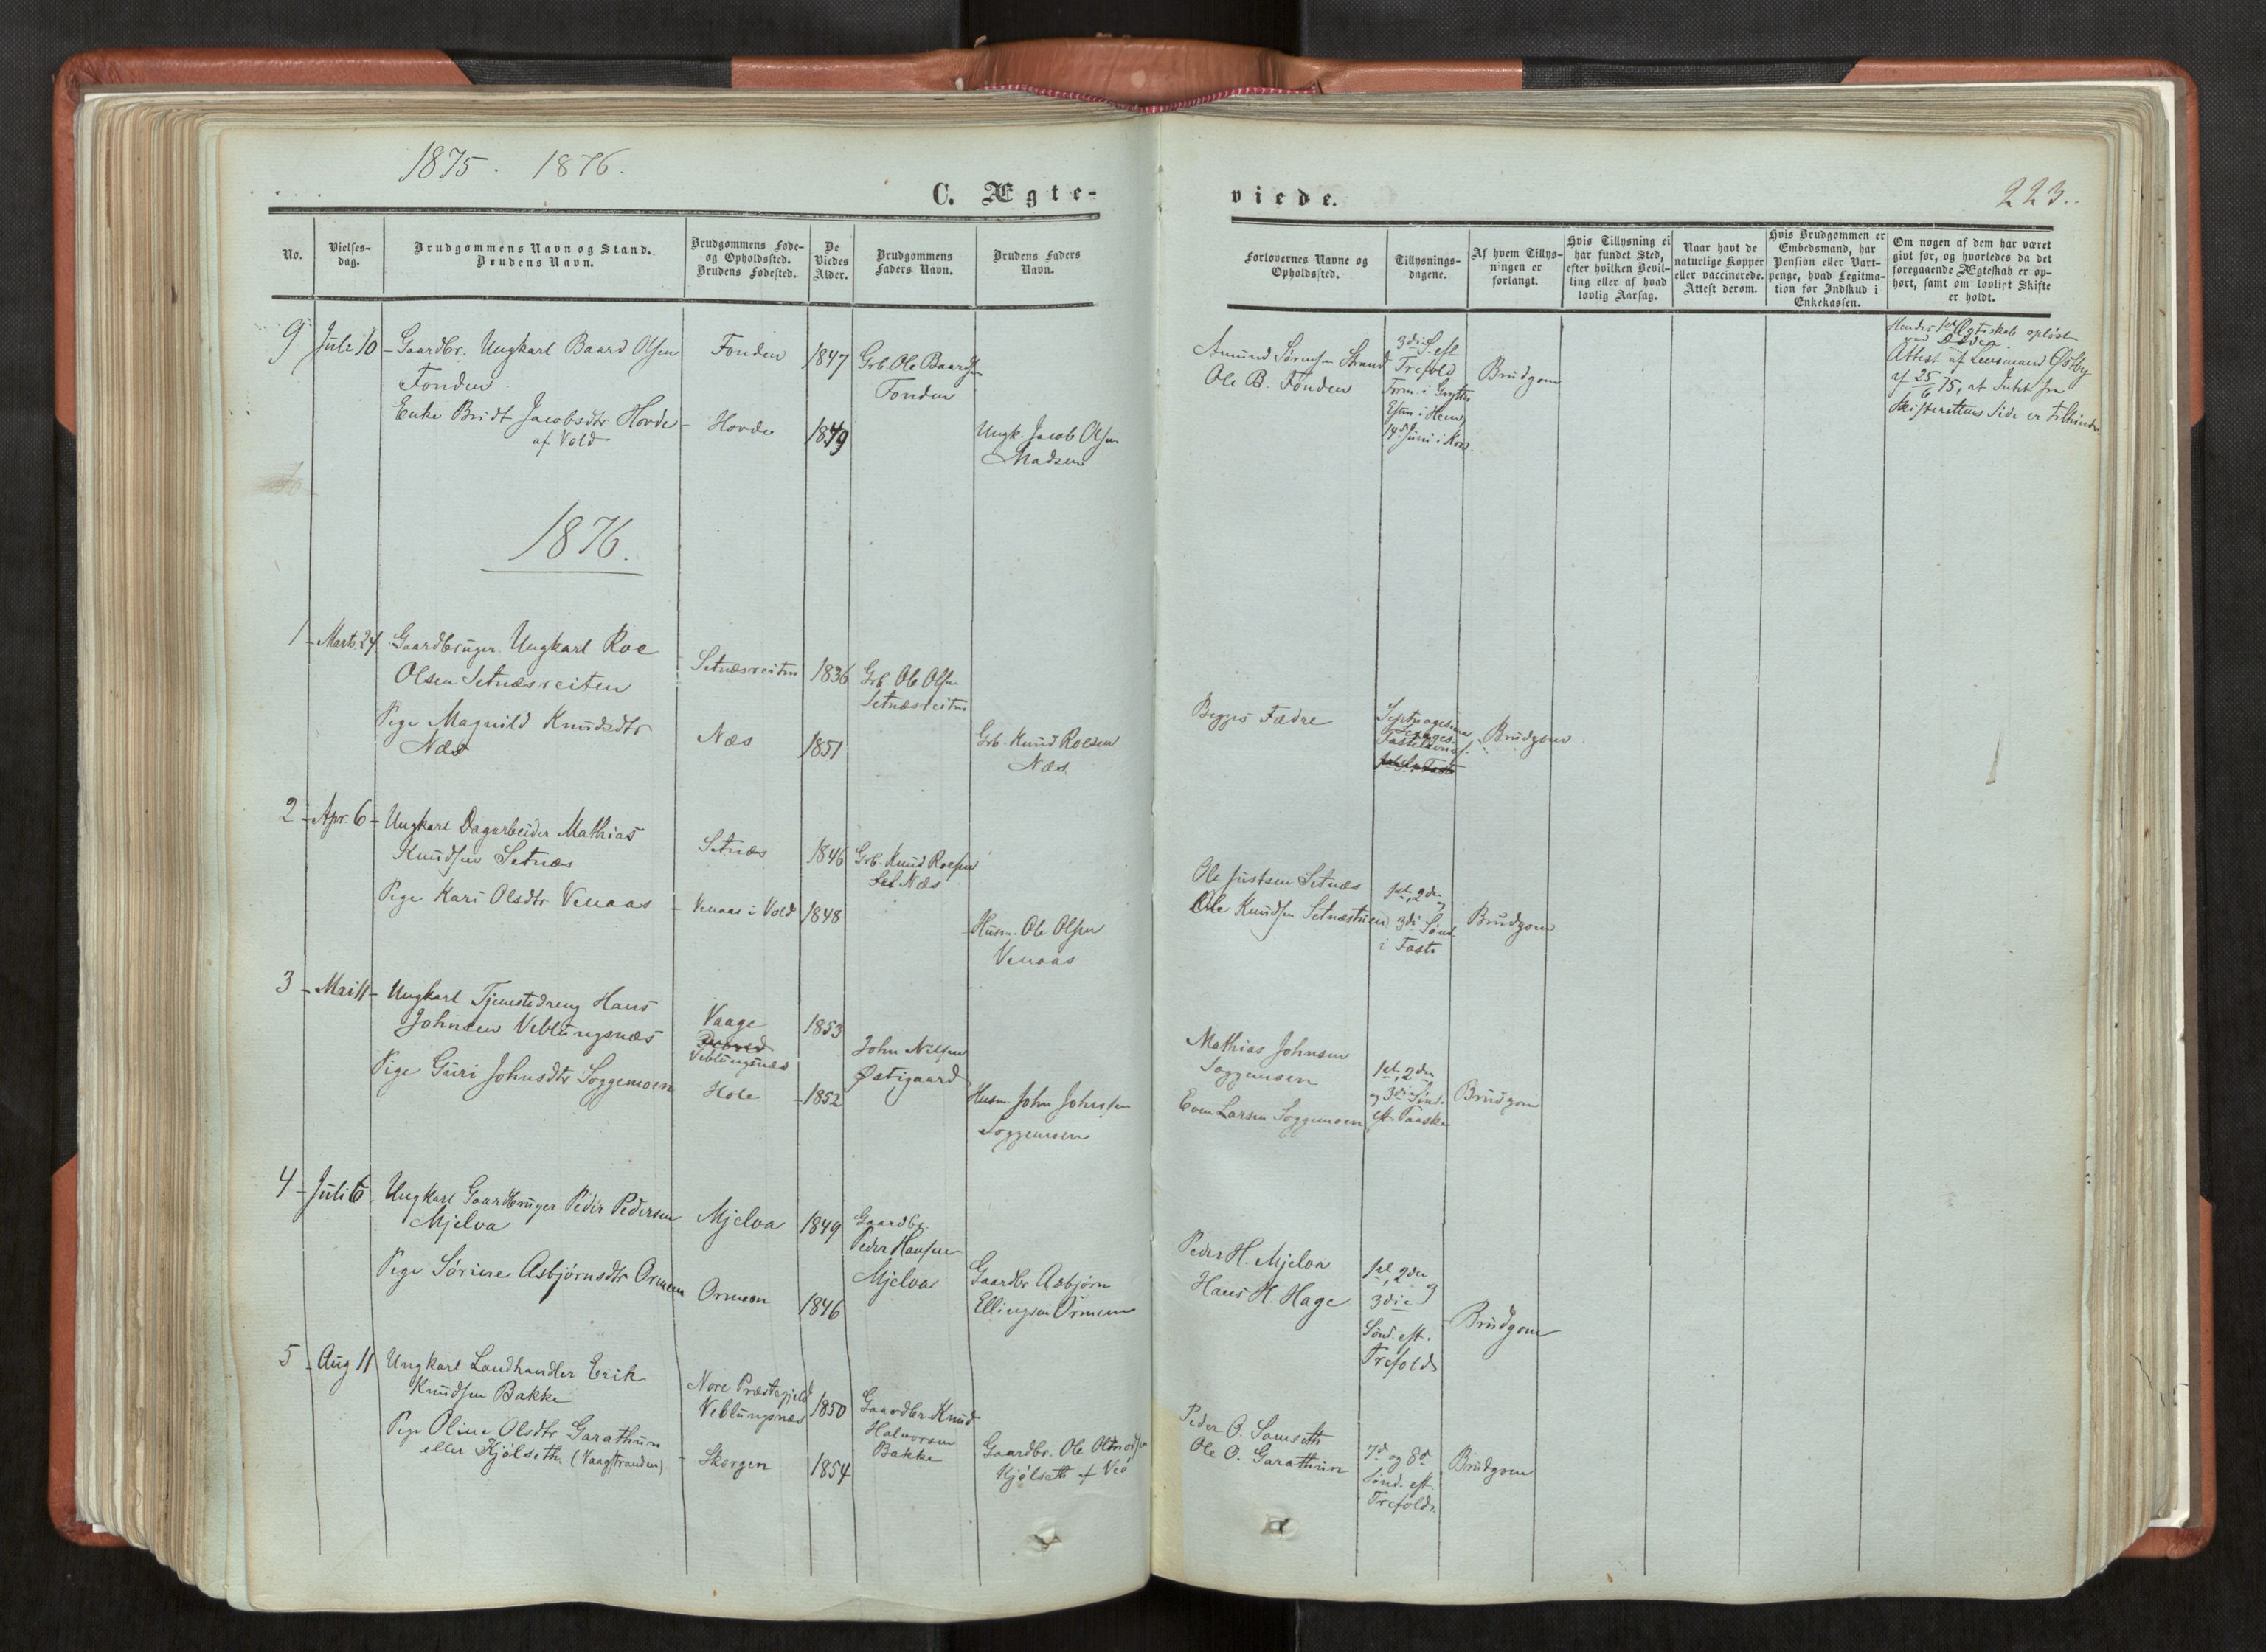 1875. 1876.
C. Ægte-
No.
Vielses-
dag.
Brudgommens Navn og Stand.
Brudens Navn.
Brudgommens Føde-
og Opholdssted.
Brudens Fødested.
De
Viedes
Alder.
Brudgommens
Faders Navn.
Brudens Faders
Navn.
9 Juli 10 Gaardbr. Ungkarl Baard Olsen Fonden 1847 Grb. Ole Baards
Fonden Fonden
Enke Bridt Jacobsdtr Hovde Hovde 1849 Ungk. Jacob Olsen
af Vold Madsen
1876.
1 Marts 24 Gaardbruger Ungkarl Roe
Olsen Setnæsreiten Setnæsreiten 1836 Grb. Ole Olsen
Setnæsreiten
Pige Magnild Knudsdtr Næs 1851 Grb. Knud Roesen
Næs Næs
2 Apr. 6 Ungkarl Dagarbeider Mathias
Knudsen Setnæs Setnæs 1846 Grb. Knud Roesen
Næs
Pige Kari Olsdtr Venaas Venaas i Vold 1848 Husm. Ole Olsen
Venaas
3 Mai 11 Ungkarl Tjenestedreng Hans
Johnsen Veblungsnæs Vaage 1853
Veblungsnæs John Nilsen
Østigaard
Pige Guri Johnsdtr Soggemoen Hole 1852 Husm. John Johnsen
Soggemoen
4 Juli 6 Ungkarl Gaardbruger Peder Pedersen
Mjelva Mjelva 1849 Gaardbr.
Peder Hansen
Mjelva
Pige Sørine Asbjørnsdtr Ormem Ormem 1846 Gaardbr Asbjørn
Ellingsen Ormem
5 Aug 11 Ungkarl Landhandler Erik
Knudsen Bakke Nore Præstegjeld
Veblungsnæs 1850 Gaardbr. Knud
Halvorsen
Bakke
Pige Oline Olsdtr Garathun
eller Kjølseth (Vaagstranden) Skorgen 1854 Gaardbr. Ole
Kjølseth af Veø
viede.
223.
Forlovernes Navne og
Opholdssted.
Tillysnings-
dagene.
Af hvem Tillys-
ningen er
forlangt.
Hvis Tillysning ei
har fundet Sted,
efter hvilken Bevil-
ling eller af hvad
lovlig Aarsag.
Naar havt de
naturlige Kopper
eller vaccinerede.
Attest derom.
Hvis Brudgommen er
Embedsmand, har
Pension eller Vart-
penge, hvad Legitima-
tion for Indskud i
Enkekassen.
Om nogen af dem har været
givt før, og hvorledes da det
foregaaende Ægteskab er op-
hørt, samt om lovligt Skifte
er holdt.
Amund Sørensen Strand
Ole B. Fonden
3di S. eft
Trefold
Form. i Grytten
Eftm. i Hen
14 Juni i Kors
Brudgom
Hendes 1ste Ægteskab opløst
ved Døden.
Attest af Lensmand Østby
af 25/6 75, at Intet fra
Skifterettens Side er til Hinder
Begges Fædre
Septuagesima
Sexages.
Fastelavns.
Brudgom
Ole Justsen Setnæs
Ole Knudsen Setnæstuen
1ste, 2den
og
3die Sønd.
i Faste
Brudgom
Mathias Johnsen
Soggemoen
Even Larsen Soggemoen
1ste, 2den
og 3die Sønd.
eft. Paaske
Brudgom
Peder H. Mjelva
Hans H. Hage
1ste, 2den
og
3die
Sønd. eft.
Trefold
Brudgom
Peder O. Samseth
Ole O. Garathun
7de og 8de
Sønd. eft.
Trefold.
Brudgom